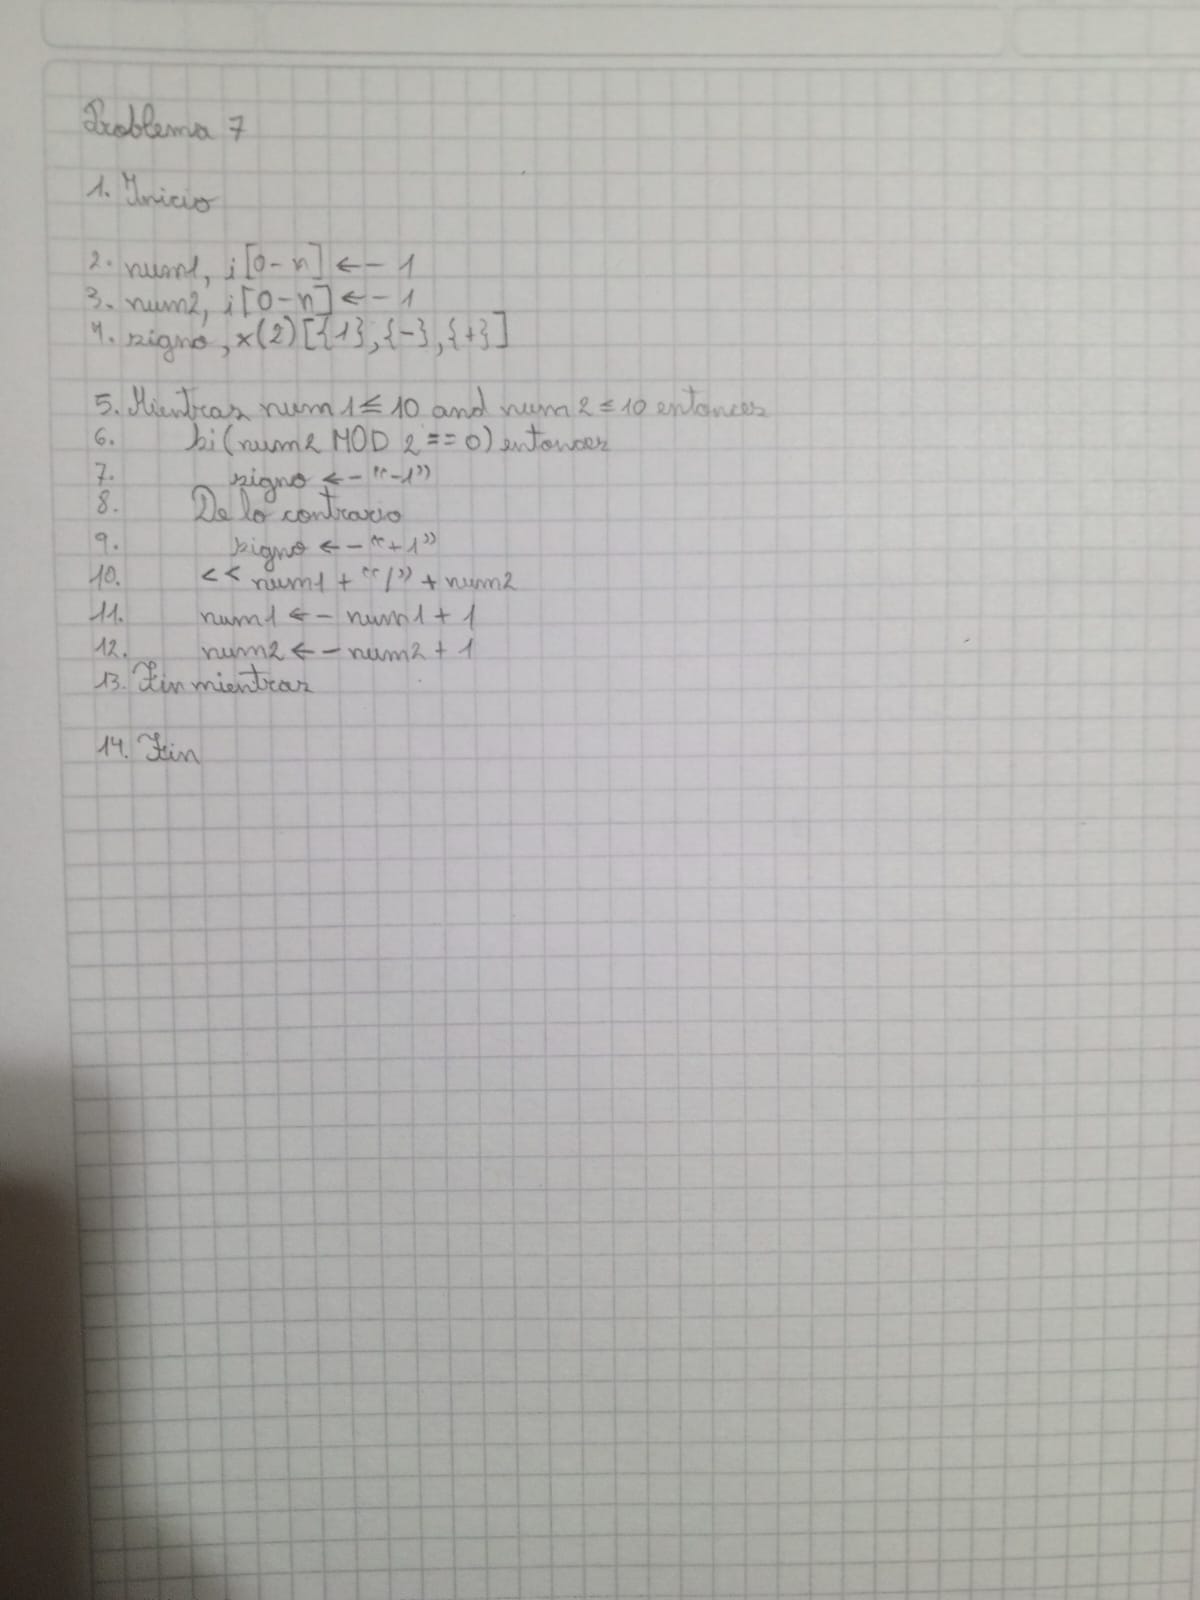 Problema 7
1. Inicio
2. num1, i[0-n] <- 1
3. num2, i[0-n] <- 1
4. signo, x(2)[{1},{-},{+}]
5. Mientras num1 ≤ 10 and num2 ≤ 10 entonces
6. Si (num2 MOD 2 == 0) entonces
7. signo <- “-1”
8. De lo contrario
9. signo <- “+1”
10. << num1 + “/” + num2
11. num1 <- num1 + 1
12. num2 <- num2 + 1
13. Fin mientras
14. Fin